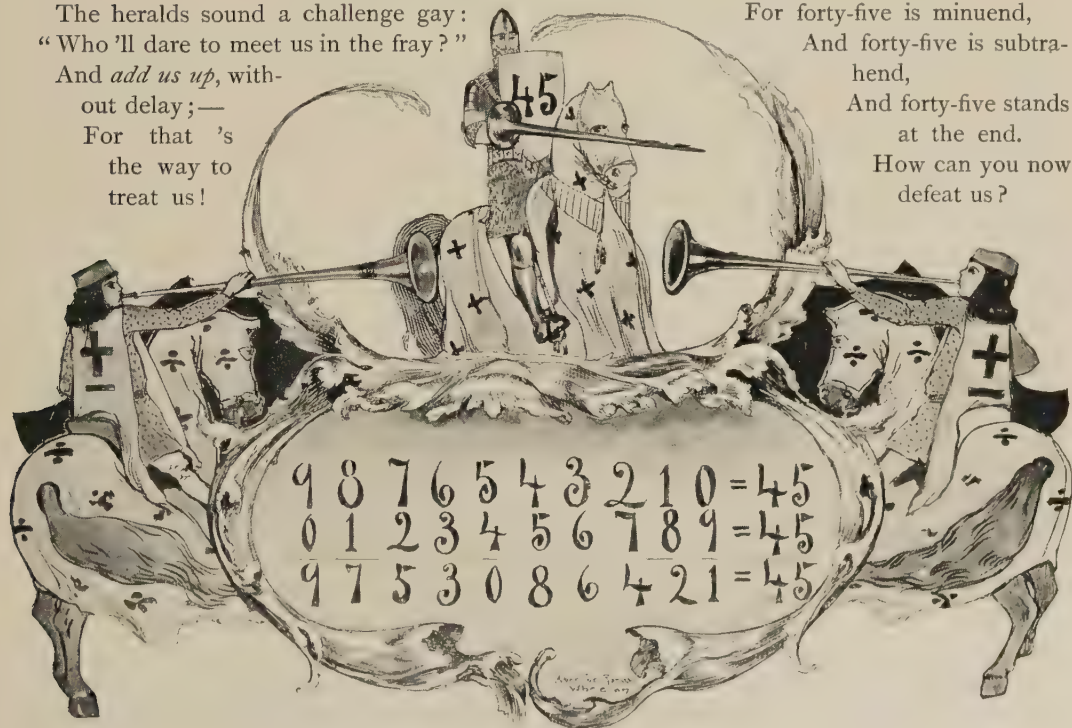 The heralds sound a challenge gay:
“Who ’ll dare to meet us in the fray?”
And add us up, with-
out delay;—
For that ’s
the way to
treat us!
For forty-five is minuend,
And forty-five is subtra-
hend,
And forty-five stands
at the end.
How can you now
defeat us?
45
9 8 7 6 5 4 3 2 1 0 = 45
0 1 2 3 4 5 6 7 8 9 = 45
9 7 5 3 0 8 6 4 2 1 = 45